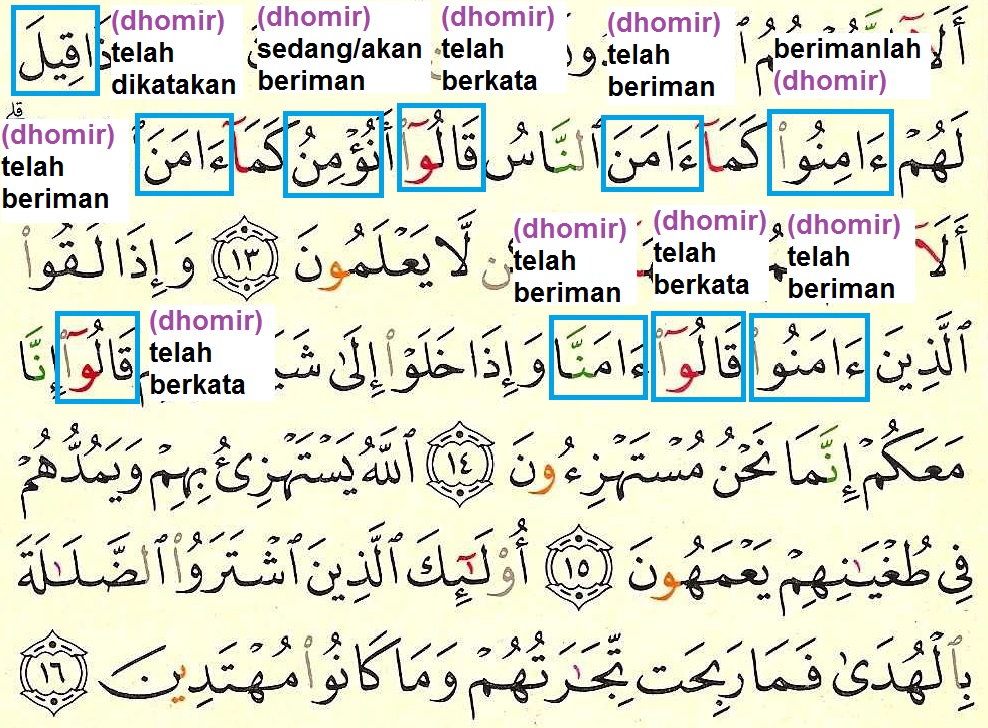 (dhomir) telah dikatakan
(dhomir) sedang/akan beriman
(dhomir) telah berkata
(dhomir) telah beriman
berimanlah (dhomir)
قِيلَ
لَهُمْ ءَامِنُوا۟ كَمَآ ءَامَنَ ٱلنَّاسُ قَالُوٓا۟ أَنُؤْمِنُ كَمَآ ءَامَنَ
(dhomir) telah beriman
لَّا يَعْلَمُونَ ١٣ وَإِذَا لَقُوا۟
(dhomir) telah beriman
(dhomir) telah berkata
(dhomir) telah beriman
ٱلَّذِينَ ءَامَنُوا۟ قَالُوٓا۟ ءَامَنَّا وَإِذَا خَلَوْا۟ إِلَىٰ قَالُوٓا۟ إِنَّا
(dhomir) telah berkata
مَعَكُمْ إِنَّمَا نَحْنُ مُسْتَهْزِءُونَ ١٤ ٱللَّهُ يَسْتَهْزِئُ بِهِمْ وَيَمُدُّهُمْ
فِى طُغْيَـٰنِهِمْ يَعْمَهُونَ ١٥ أُو۟لَـٰٓئِكَ ٱلَّذِينَ ٱشْتَرَوُا۟ ٱلضَّلَـٰلَةَ
بِٱلْهُدَىٰ فَمَا رَبِحَت تِّجَـٰرَتُهُمْ وَمَا كَانُوا۟ مُهْتَدِينَ ١٦